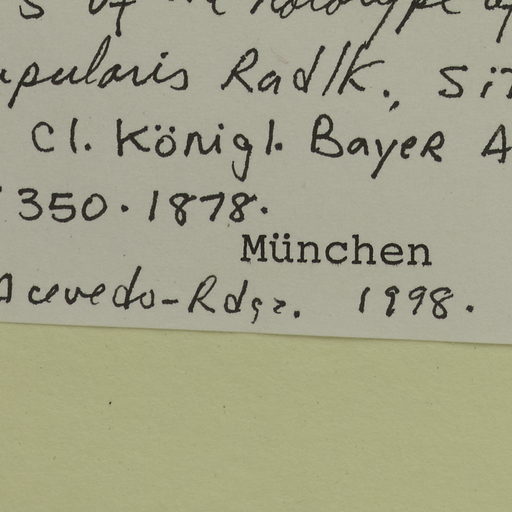 of the holotype of
pularis Radlk., Sit
Cl. Königl. Bayer A
350. 1878.
München
Acevedo-Rdgz. 1998.